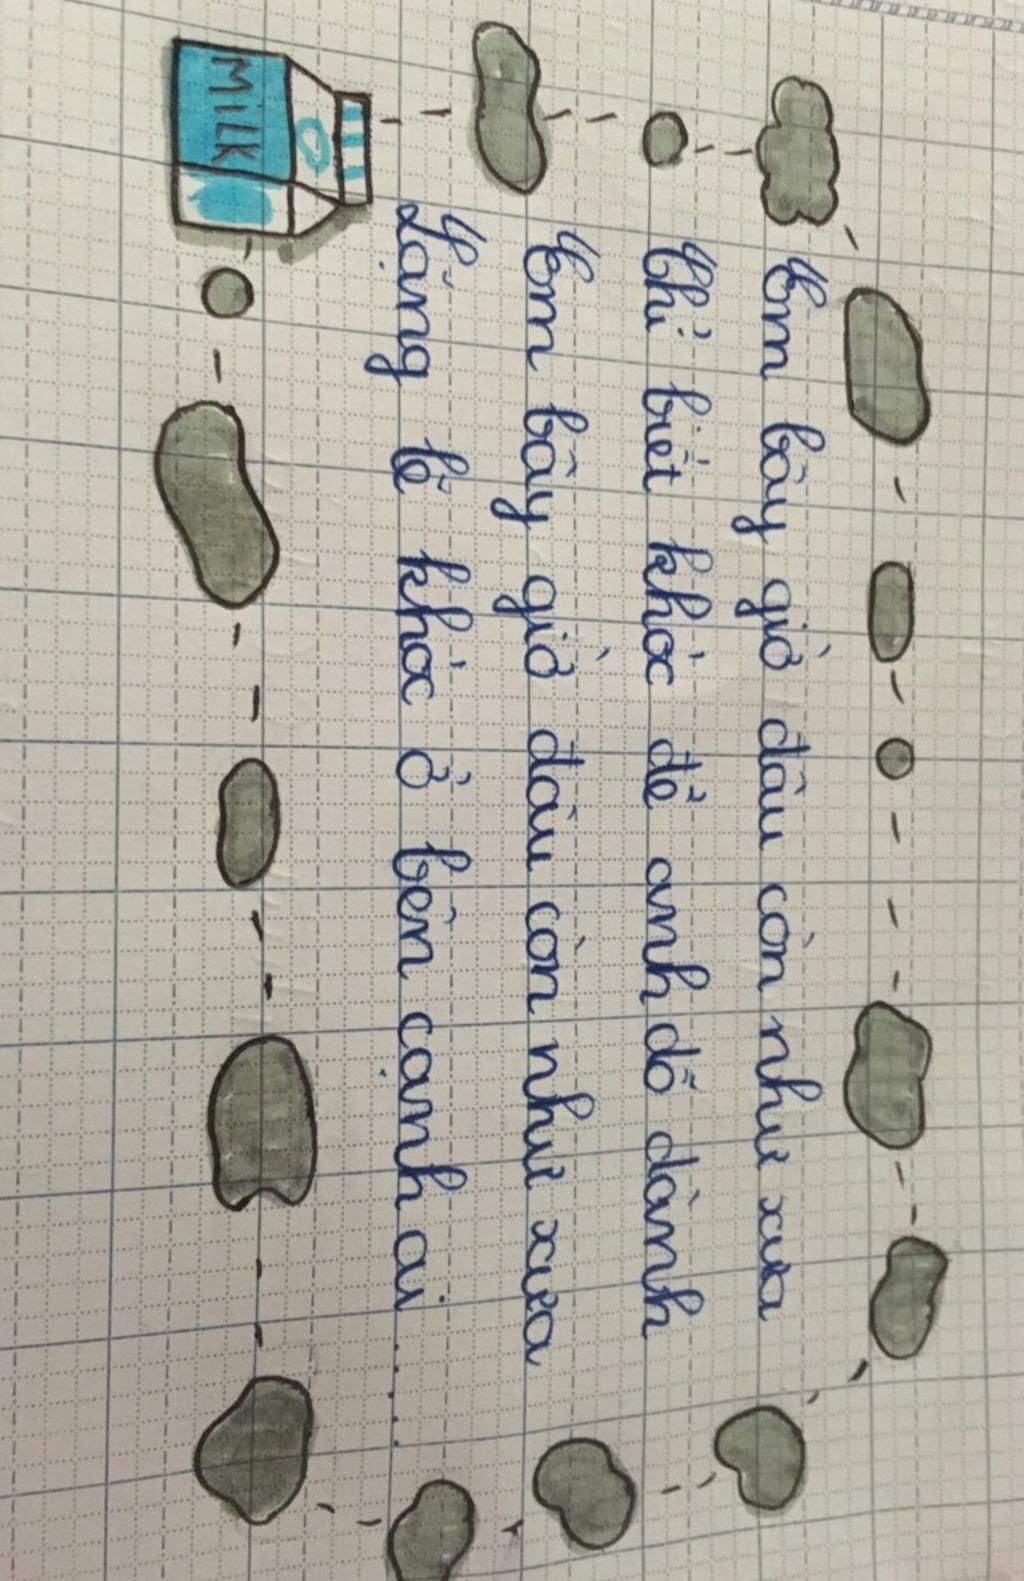 Em bây giờ đâu còn như xưa
Chỉ biết khóc để anh dỗ dành
Em bây giờ đâu còn như xưa
Lặng lẽ khóc ở bên cạnh ai.....
MiLK